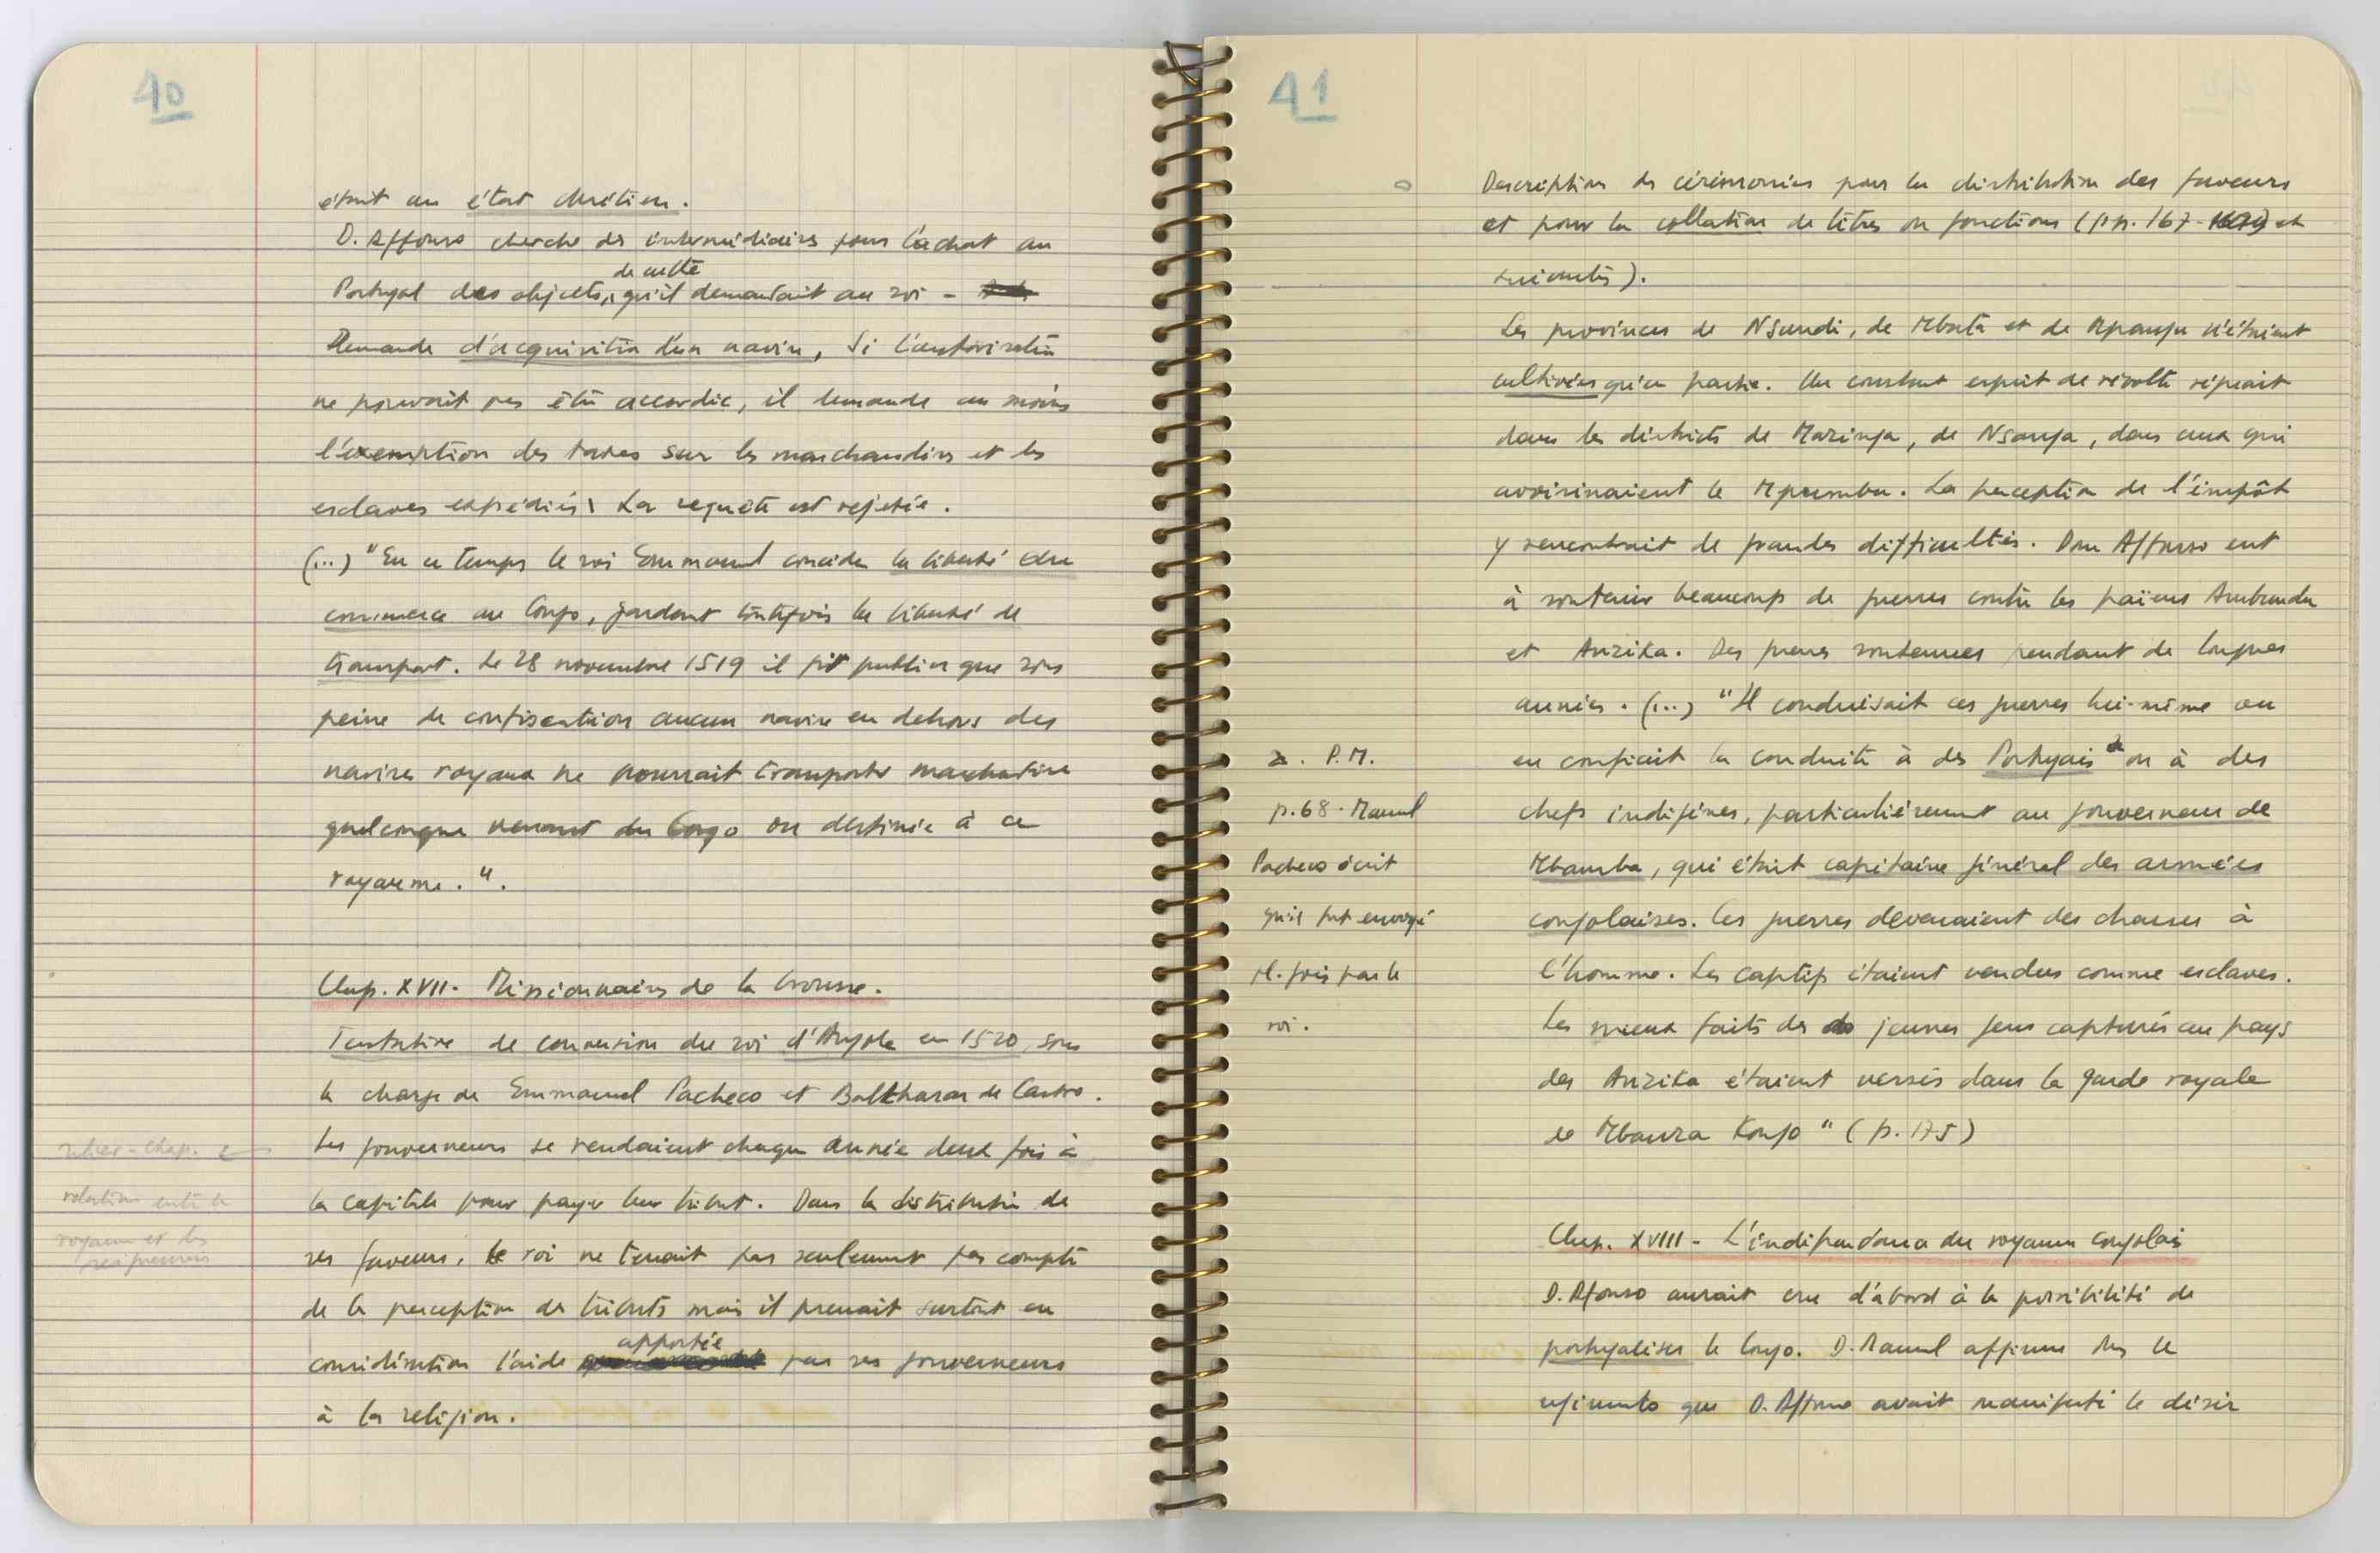 40
était un état chrétien.
D. Affonso cherche des intermédiaires pour l'achat au
de culte
Portugal des objets, qu'il demandait au roi -
Demande d'acquisition d'un navire, Si l'autorisation
ne pouvait pas être accordée, il demande au moins
l'exemption des taxes sur les marchandises et les
esclaves expédiés. La requête est rejetée.
(...) "En ce temps le roi Emmanuel concéda la liberté du
commerce au Congo, gardant toutefois la liberté de
transport. Le 28 novembre 1519 il fit publier que sous
peine de confiscation aucun navire en dehors des
navires royaux ne pourrait transporter marchandise
quelconque venant du Congo ou destinée à ce
royaume.".
Chap. XVII- Missionnaires de la brousse.
Tentative de conversion du roi d'Angola en 1520, sous
la charge de Emmanuel Pacheco et Balthazar de Castro.
Les gouverneurs se rendaient chaque année deux fois à
la capitale pour payer leur tribut. Dans la distribution de
ses faveurs, le roi ne tenait pas seulement pas compte
de la perception des tributs mais il prenait surtout en
apportée
considération l'aide par ses gouverneurs
à la religion.
chap.
relation entre le
royaume et les
41
Description des cérémonies pour la distribution des faveurs
et pour la collation de titres ou fonctions (pp. 167- et
suivantes).
Les provinces de Nsundi, de Mbata et de Mpangu n'étaient
cultivées qu'en partie. Un constant esprit de révolte régnait
dans les districts de Mazinga, de Nsanga, dans ceux qui
avoisinaient le Mpumbu. La perception de l'impôt
y rencontrait de grandes difficultés. Dom Affonso eut
à soutenir beaucoup de guerres contre les païens Ambundu
et Anzika. Des guerres soutenues pendant de longues
années. (...) "Il conduisait ces guerres lui-même ou
en confiait la conduite à des Portugais ou à des
chefs indigènes, particulièrement au gouverneur de
Mbamba, qui était capitaine général des armées
congolaises. Ces guerres devenaient des chasses à
l'homme. Les captifs étaient vendus comme esclaves.
Les mieux faits des jeunes gens capturés au pays
des Anzika étaient versés dans la garde royale
de Mbanza Kongo" (p. 175)
P.M.
p.68. Manuel
Pacheco écrit
qu'il fut envoyé
pl. fois par le
roi.
Chap. XVIII- L'indépendance du royaume congolais
D. Afonso aurait cru d'abord à la possibilité de
portugaliser le Congo. D. Manuel affirme dans le
regimento que D. Affonso avait manifesté le désir